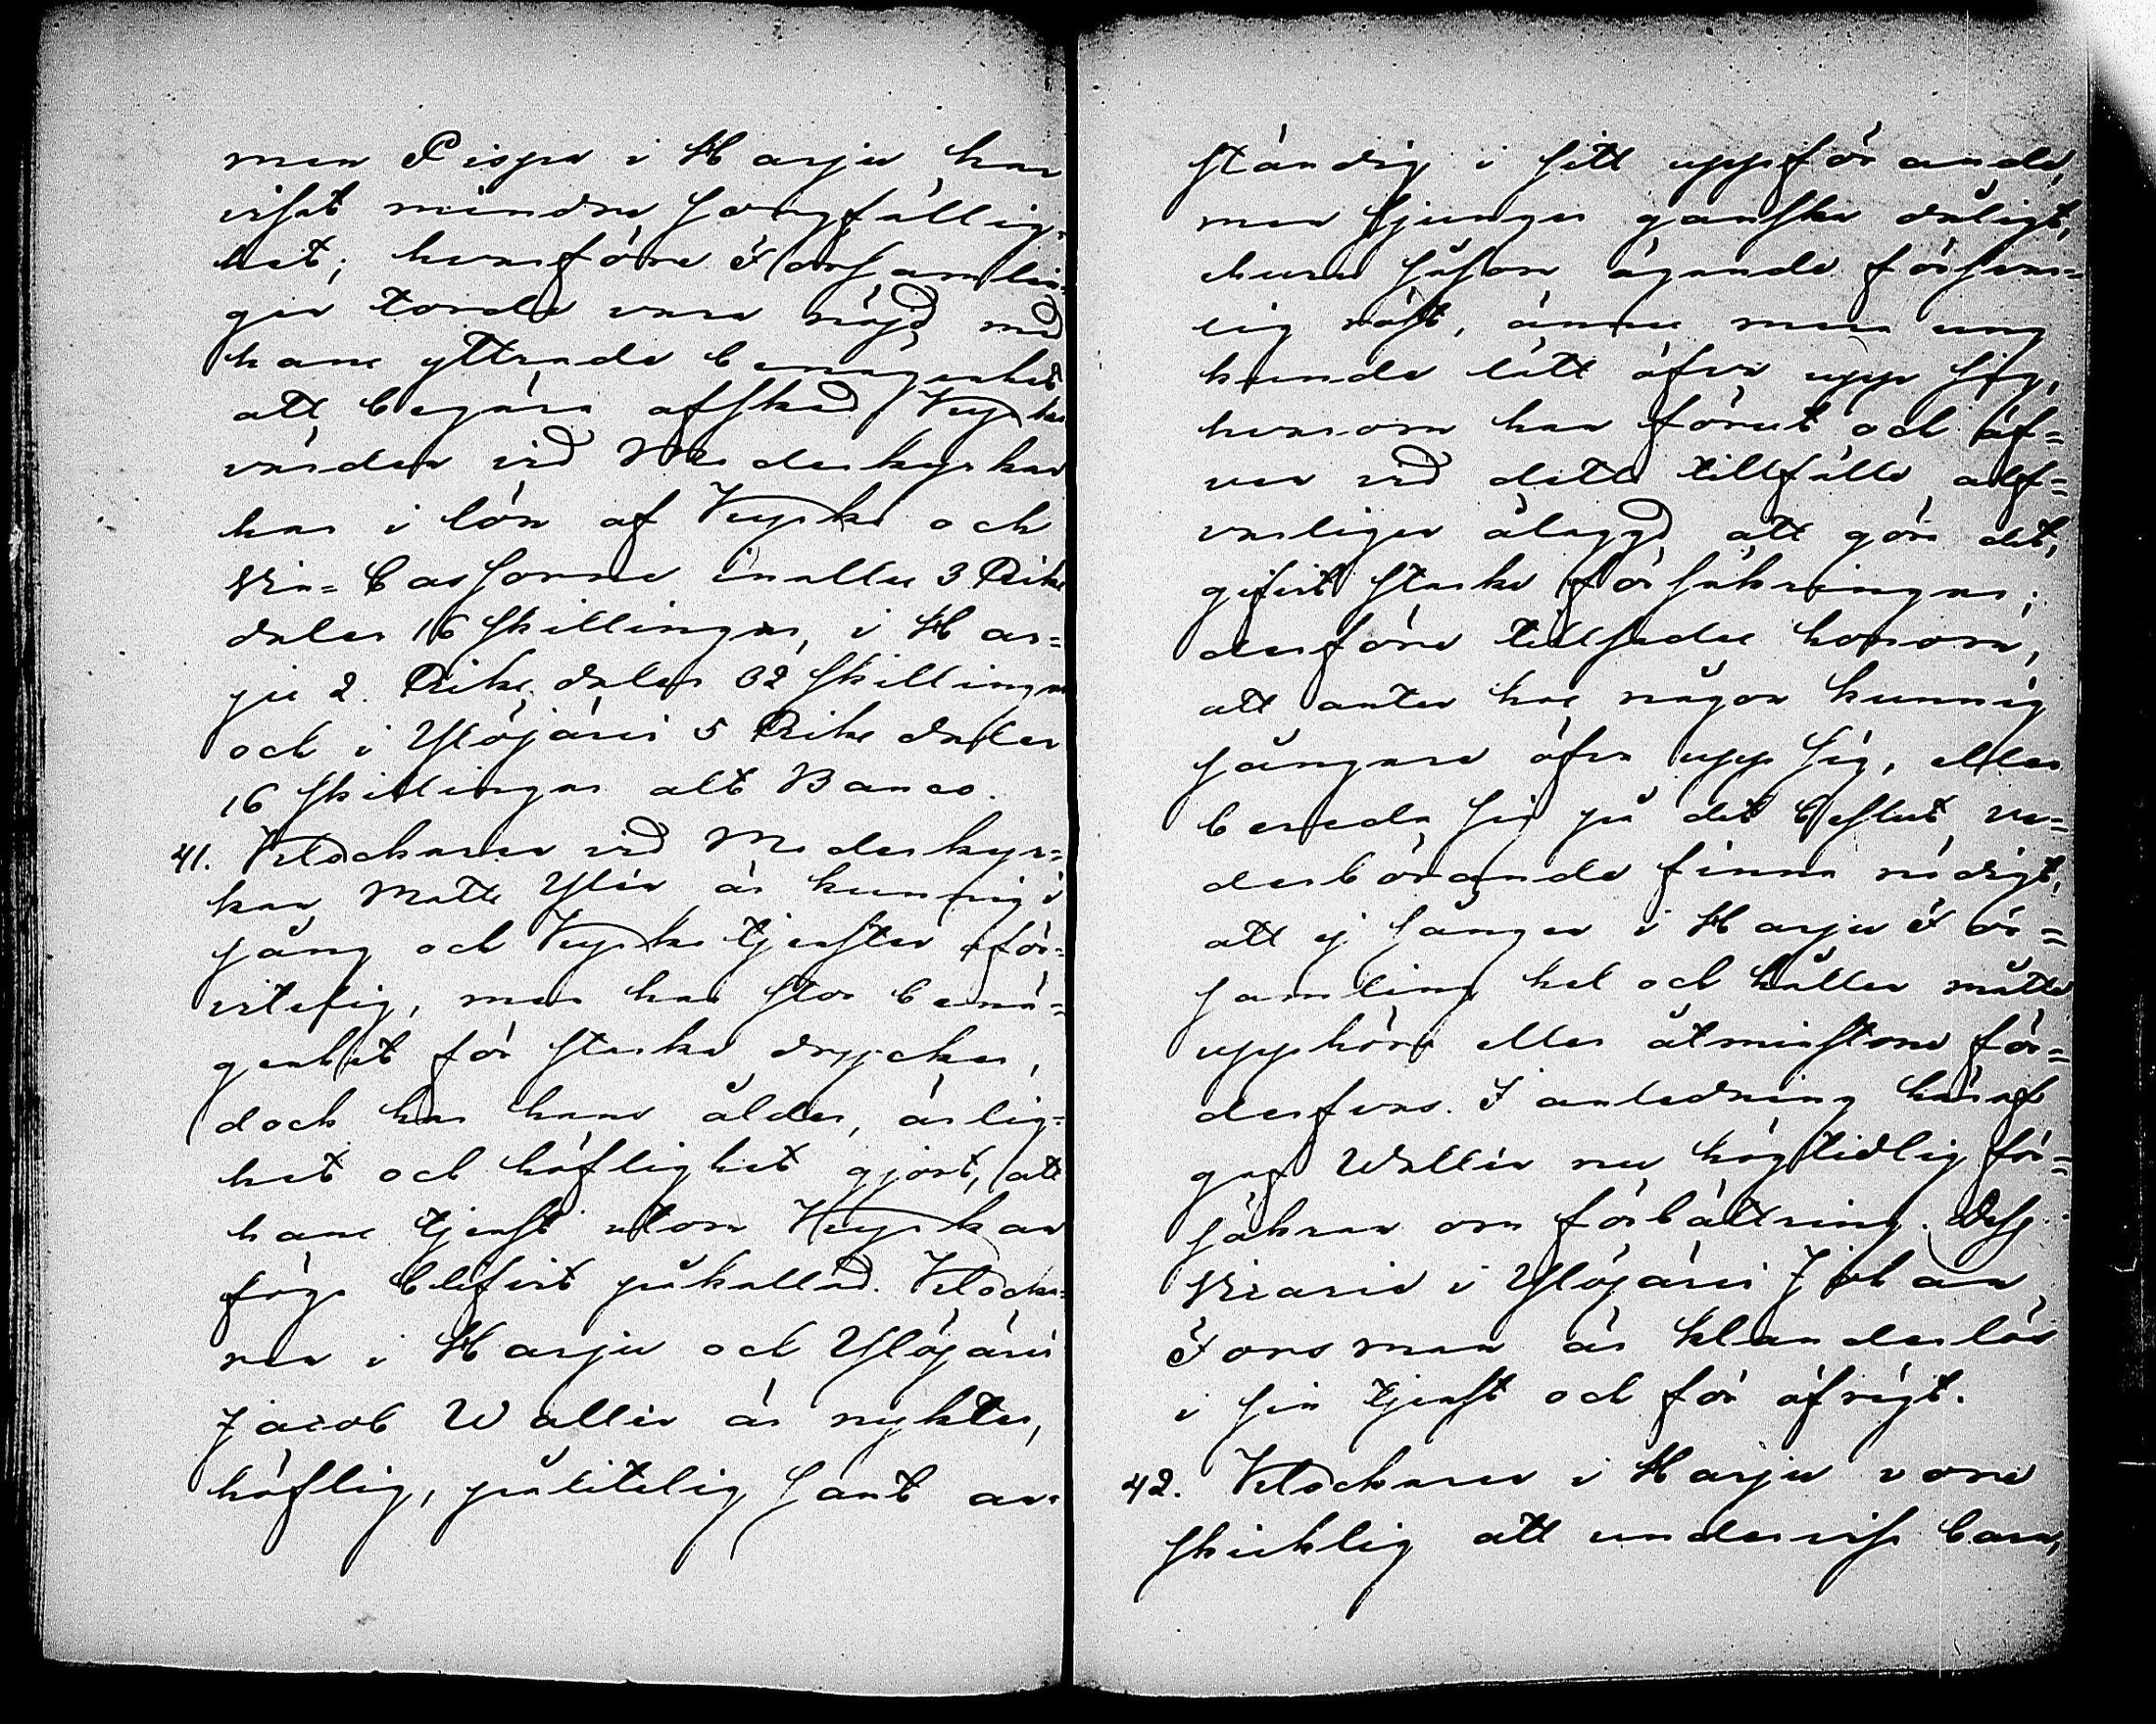 men Pispa i Harju har
visat mindre sorgfällig-
het; hvarföre Församlin-
gen torde vara nöjd med
hans yttrade benägenhet
att begära afsked. Kyrko
värden vid Moderkyrkan
har i lön af Kyrko och
Vin-Cassorne inalles 3 Riks
daler 16 skillingar, i Har-
ju 2. Riks daler 32 skillingar
och i Ylöjärvi 5 Riks daler
16 skillingar alt Banco.
41. Klockaren vid Moderkyr-
kan Matts Ylén är kunnig i
sång och Kyrko tjensten oför-
vitelig, men har stor benä-
genhet för starka drycker,
dock har hans ålder, ärlig-
het och höflighet gjort, att
hans tjenst utom Kyrkan
föga blifvit påkallad. Klocka-
ren i Harju och Ylöjärvi
Jacob Wallén är nykter,
höflig, pålitelig samt an-
ständig i sitt uppförande,
men sjunger ganska dåligt,
ehuru såsom ägande försvar-
lig röst, ännu man ung
kunde lätt öfva upp sig,
hvarom han förut och äf-
ven vid detta tillfälle alf-
varligen ålagd att göra det,
gifvit starka försäkringar;
derföre tillsades honom,
att antin hos någon kunnig
sångare öfva upp sig, eller
bereda sig på det beslut ve-
derbörande finna nödigt,
att ej sången i Harju För-
samling hel och hållen måtte
upphöra eller åtminstone för-
derfvas. I anledning häraf
gaf Wallén nu högtidlig för-
säkran om förbättring. Dess
Vicarie i Ylöjärvi Johan
Forsman är klanderlös
i sin tjenst och för öfrigt.
42. Klockaren i Harju vore
skicklig att undervisa barn,